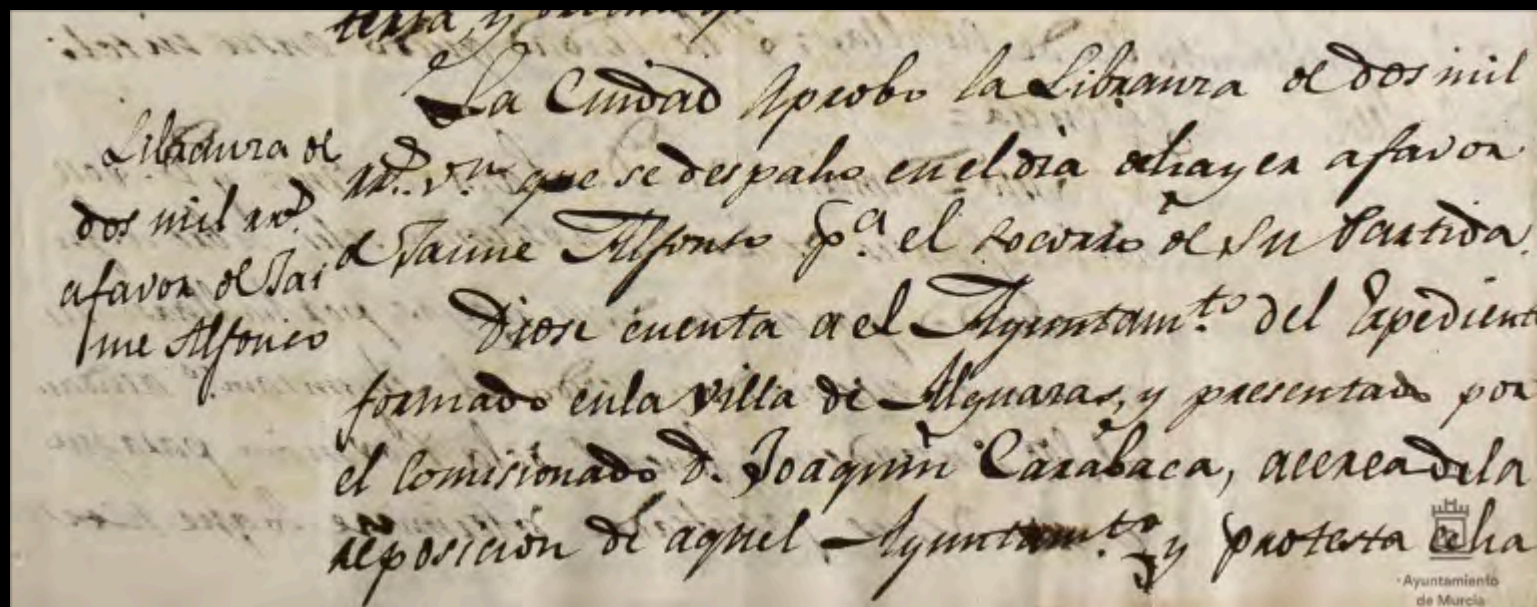 La Ciudad Aprobo la Libranza de dos mil
Libranza de
dos mil rr.s
afavor de Jai
me Alfonso
rr.s v.n que se despacho en el dia de hayer afavor
de Jaime Alfonso p.a el socorro de su Partida.
Diose cuenta a el Ayuntam.to del Expedient
formado enla Villa de Alguazas, y presentado por
el Comisionado D. Joaquin Carabaca, acerca dela
reposicion de aquel Ayuntam.to y protesta
Ayuntamiento
de Murcia